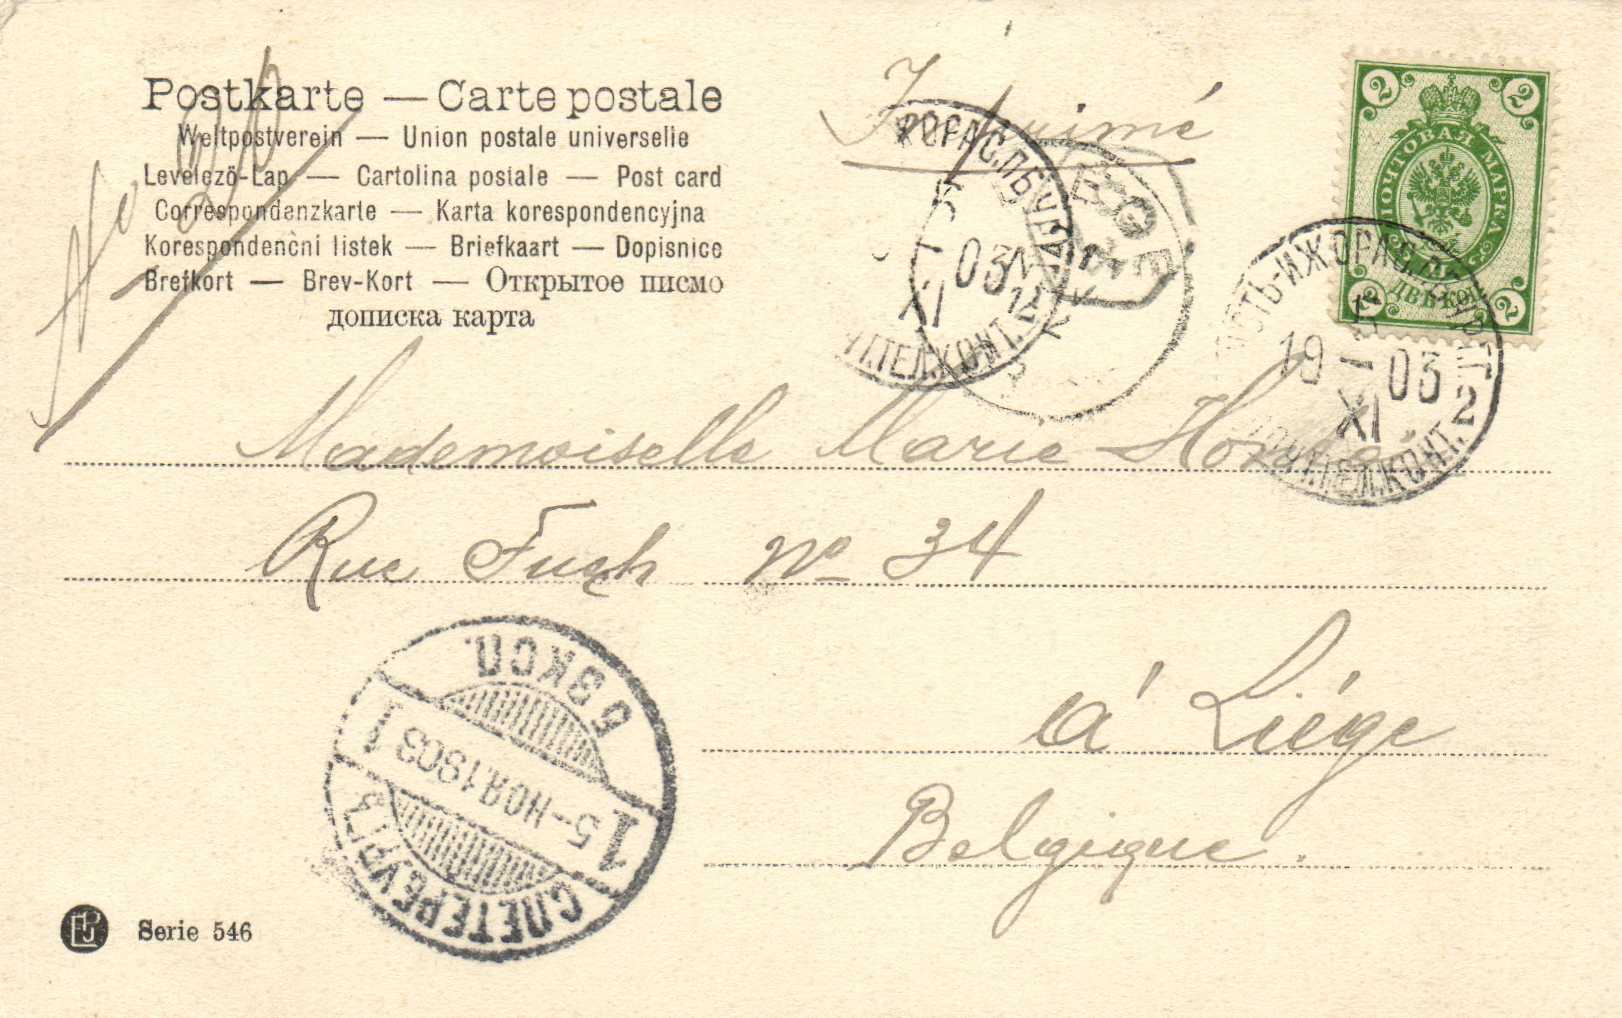 Postkarte — Carte postale
Weltpostverein — Union postale universelle
Levelező-Lap — Cartolina postale — Post card
Correspondenzkarte — Karta korespondencyjna
Korespondenční listek — Briefkaart — Dopisnice
Brefkort — Brev-Kort — Открытое писмо
дописка карта
No 20
Imprimé
2 2
ПОЧТОВАЯ МАРКА
ДВѢ КОП.
2 2
ЖОРА С.ПБ.
03
XI
П.ТЕЛ.КОНТ.
УСТЬ-ИЖОРА С.ПБУРГ.Г.
19 03
XI
2
ПОЧТ.ТЕЛ.КОНТ.
Mademoiselle Marie
Rue Fusch No 34
á Liége
Belgique.
С.ПЕТЕРБУРГЪ
1 5-НОЯ.1903 1
5 ЭКСП.
Serie 546